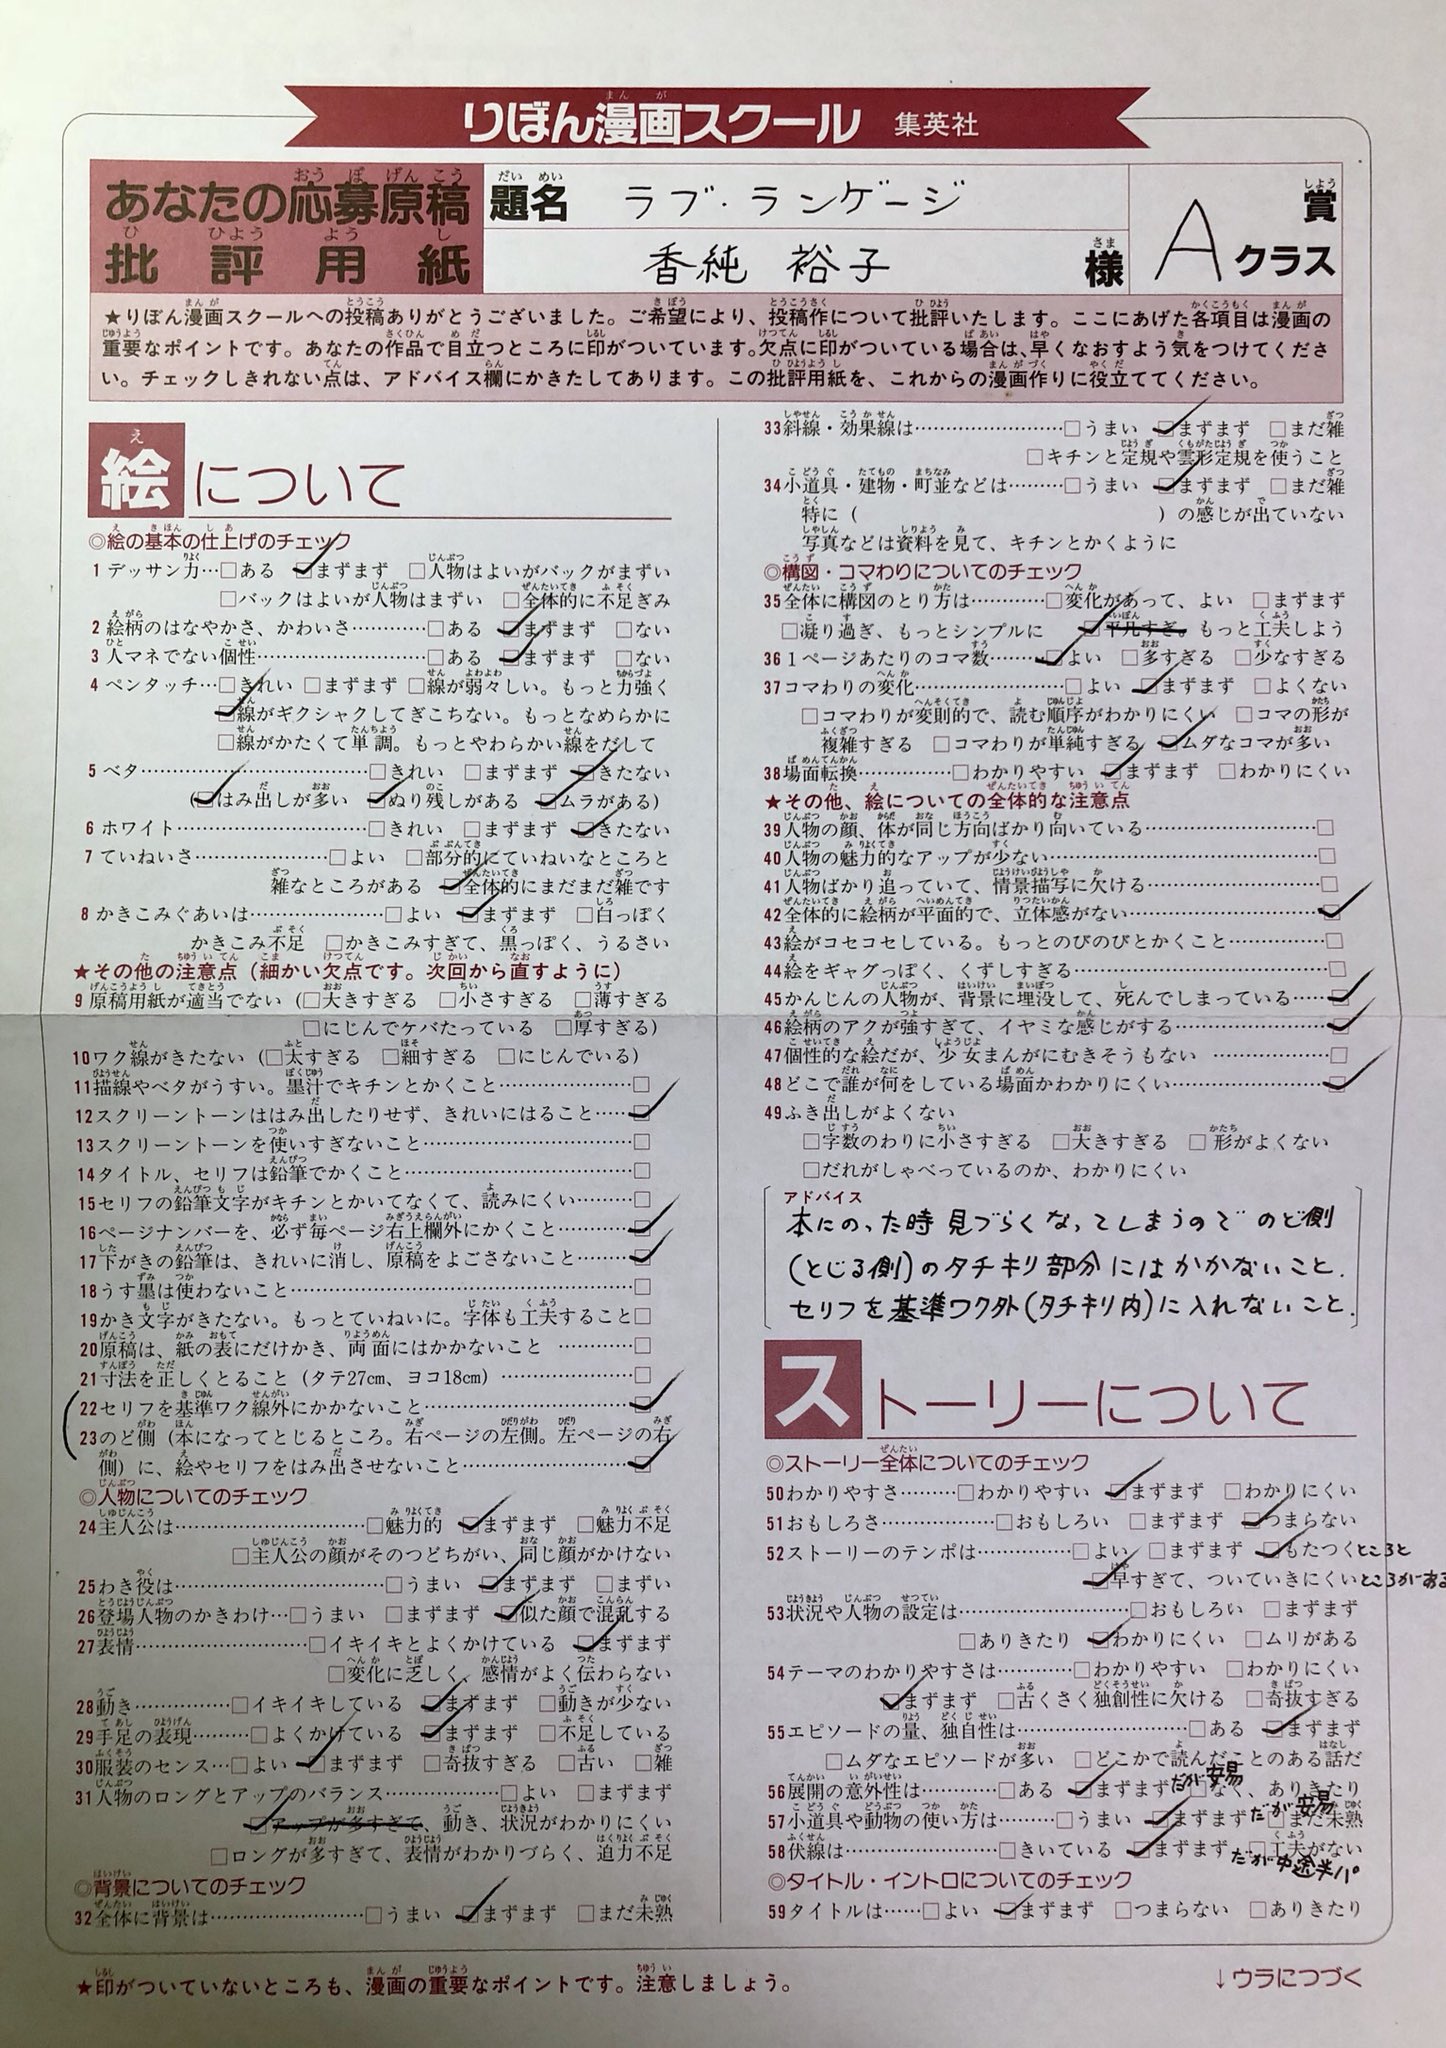 りぼん漫画スクール 集英社
あなたの応募原稿
批評用紙
題名 ラブ・ランゲージ
香純 裕子 様
A 賞 クラス
★りぼん漫画スクールへの投稿ありがとうございました。ご希望により、投稿作について批評いたします。ここにあげた各項目は漫画の
重要なポイントです。あなたの作品で目立つところに印がついています。欠点に印がついている場合は、早くなおすよう気をつけてくださ
い。チェックしきれない点は、アドバイス欄にかきたしてあります。この批評用紙を、これからの漫画作りに役立ててください。
絵について
◎絵の基本の仕上げのチェック
1 デッサン力…□ある ☑まずまず □人物はよいがバックがまずい
□バックはよいが人物はまずい □全体的に不足ぎみ
2 絵柄のはなやかさ、かわいさ…………□ある ☑まずまず □ない
3 人マネでない個性…………………………□ある ☑まずまず □ない
4 ペンタッチ…□きれい □まずまず □線が弱々しい。もっと力強く
☑線がギクシャクしてぎこちない。もっとなめらかに
□線がかたくて単調。もっとやわらかい線をだして
5 ベタ……………………………□きれい □まずまず ☑きたない
(☑はみ出しが多い ☑ぬり残しがある ☑ムラがある)
6 ホワイト………………………□きれい □まずまず ☑きたない
7 ていねいさ…………………□よい □部分的にていねいなところと
雑なところがある ☑全体的にまだまだ雑です
8 かきこみぐあいは………………□よい ☑まずまず □白っぽく
かきこみ不足 □かきこみすぎて、黒っぽく、うるさい
★その他の注意点(細かい欠点です。次回から直すように)
9 原稿用紙が適当でない(□大きすぎる □小さすぎる □薄すぎる
□にじんでケバたっている □厚すぎる)
10 ワク線がきたない(□太すぎる □細すぎる □にじんでいる)
11 描線やベタがうすい。墨汁でキチンとかくこと…………………□
12 スクリーントーンははみ出したりせず、きれいにはること……☑
13 スクリーントーンを使いすぎないこと…………………………□
14 タイトル、セリフは鉛筆でかくこと……………………………□
15 セリフの鉛筆文字がキチンとかいてなくて、読みにくい………□
16 ページナンバーを、必ず毎ページ右上欄外にかくこと…………☑
17 下がきの鉛筆は、きれいに消し、原稿をよごさないこと………☑
18 うす墨は使わないこと……………………………………………□
19 かき文字がきたない。もっとていねいに。字体も工夫すること□
20 原稿は、紙の表にだけかき、両面にはかかないこと …………□
21 寸法を正しくとること(タテ27cm、ヨコ18cm)…………………□
22 セリフを基準ワク線外にかかないこと…………………………☑
23 のど側(本になってとじるところ。右ページの左側。左ページの右
側)に、絵やセリフをはみ出させないこと………………………☑
◎人物についてのチェック
24 主人公は………………………□魅力的 ☑まずまず □魅力不足
□主人公の顔がそのつどちがい、同じ顔がかけない
25 わき役は…………………………□うまい ☑まずまず □まずい
26 登場人物のかきわけ…□うまい □まずまず ☑似た顔で混乱する
27 表情……………………□イキイキとよくかけている ☑まずまず
□変化に乏しく、感情がよく伝わらない
28 動き…………□イキイキしている ☑まずまず □動きが少ない
29 手足の表現………□よくかけている ☑まずまず □不足している
30 服装のセンス…□よい ☑まずまず □奇抜すぎる □古い □雑
31 人物のロングとアップのバランス…………□よい □まずまず
☑アップが多すぎて、動き、状況がわかりにくい
□ロングが多すぎて、表情がわかりづらく、迫力不足
◎背景についてのチェック
32 全体に背景は…………………□うまい ☑まずまず □まだ未熟
33 斜線・効果線は…………………□うまい ☑まずまず □まだ雑
□キチンと定規や雲形定規を使うこと
34 小道具・建物・町並などは………□うまい ☑まずまず □まだ雑
特に( )の感じが出ていない
写真などは資料を見て、キチンとかくように
◎構図・コマわりについてのチェック
35 全体に構図のとり方は…………□変化があって、よい □まずまず
□凝り過ぎ、もっとシンプルに ☑平凡すぎ。もっと工夫しよう
36 1ページあたりのコマ数………☑よい □多すぎる □少なすぎる
37 コマわりの変化…………………□よい ☑まずまず □よくない
□コマわりが変則的で、読む順序がわかりにくい □コマの形が
複雑すぎる □コマわりが単純すぎる ☑ムダなコマが多い
38 場面転換…………□わかりやすい ☑まずまず □わかりにくい
★その他、絵についての全体的な注意点
39 人物の顔、体が同じ方向ばかり向いている………………………□
40 人物の魅力的なアップが少ない……………………………………□
41 人物ばかり追っていて、情景描写に欠ける………………………□
42 全体的に絵柄が平面的で、立体感がない…………………………☑
43 絵がコセコセしている。もっとのびのびとかくこと……………□
44 絵をギャグっぽく、くずしすぎる…………………………………□
45 かんじんの人物が、背景に埋没して、死んでしまっている……☑
46 絵柄のアクが強すぎて、イヤミな感じがする……………………☑
47 個性的な絵だが、少女まんがにむきそうもない ………………□
48 どこで誰が何をしている場面かわかりにくい……………………☑
49 ふき出しがよくない
□字数のわりに小さすぎる □大きすぎる □形がよくない
□だれがしゃべっているのか、わかりにくい
アドバイス
本にのった時見づらくなってしまうので のど側
(とじる側)のタチキリ部分にはかかないこと.
セリフを基準ワク外(タチキリ内)に入れないこと.
ストーリーについて
◎ストーリー全体についてのチェック
50 わかりやすさ………□わかりやすい ☑まずまず □わかりにくい
51 おもしろさ………………□おもしろい □まずまず ☑つまらない
52 ストーリーのテンポは…………□よい □まずまず ☑もたつくところと
☑早すぎて、ついていきにくいところがある
53 状況や人物の設定は……………………□おもしろい □まずまず
□ありきたり ☑わかりにくい □ムリがある
54 テーマのわかりやすさは…………□わかりやすい □わかりにくい
☑まずまず □古くさく独創性に欠ける □奇抜すぎる
55 エピソードの量、独自性は……………………□ある ☑まずまず
□ムダなエピソードが多い □どこかで読んだことのある話だ
56 展開の意外性は…………□ある ☑まずまずだが安易 □なく、ありきたり
57 小道具や動物の使い方は…………□うまい ☑まずまずだが安易 □まだ未熟
58 伏線は……………………□きいている ☑まずまず □工夫がない
だが中途半パ
◎タイトル・イントロについてのチェック
59 タイトルは……□よい ☑まずまず □つまらない □ありきたり
★印がついていないところも、漫画の重要なポイントです。注意しましょう。
↓ウラにつづく